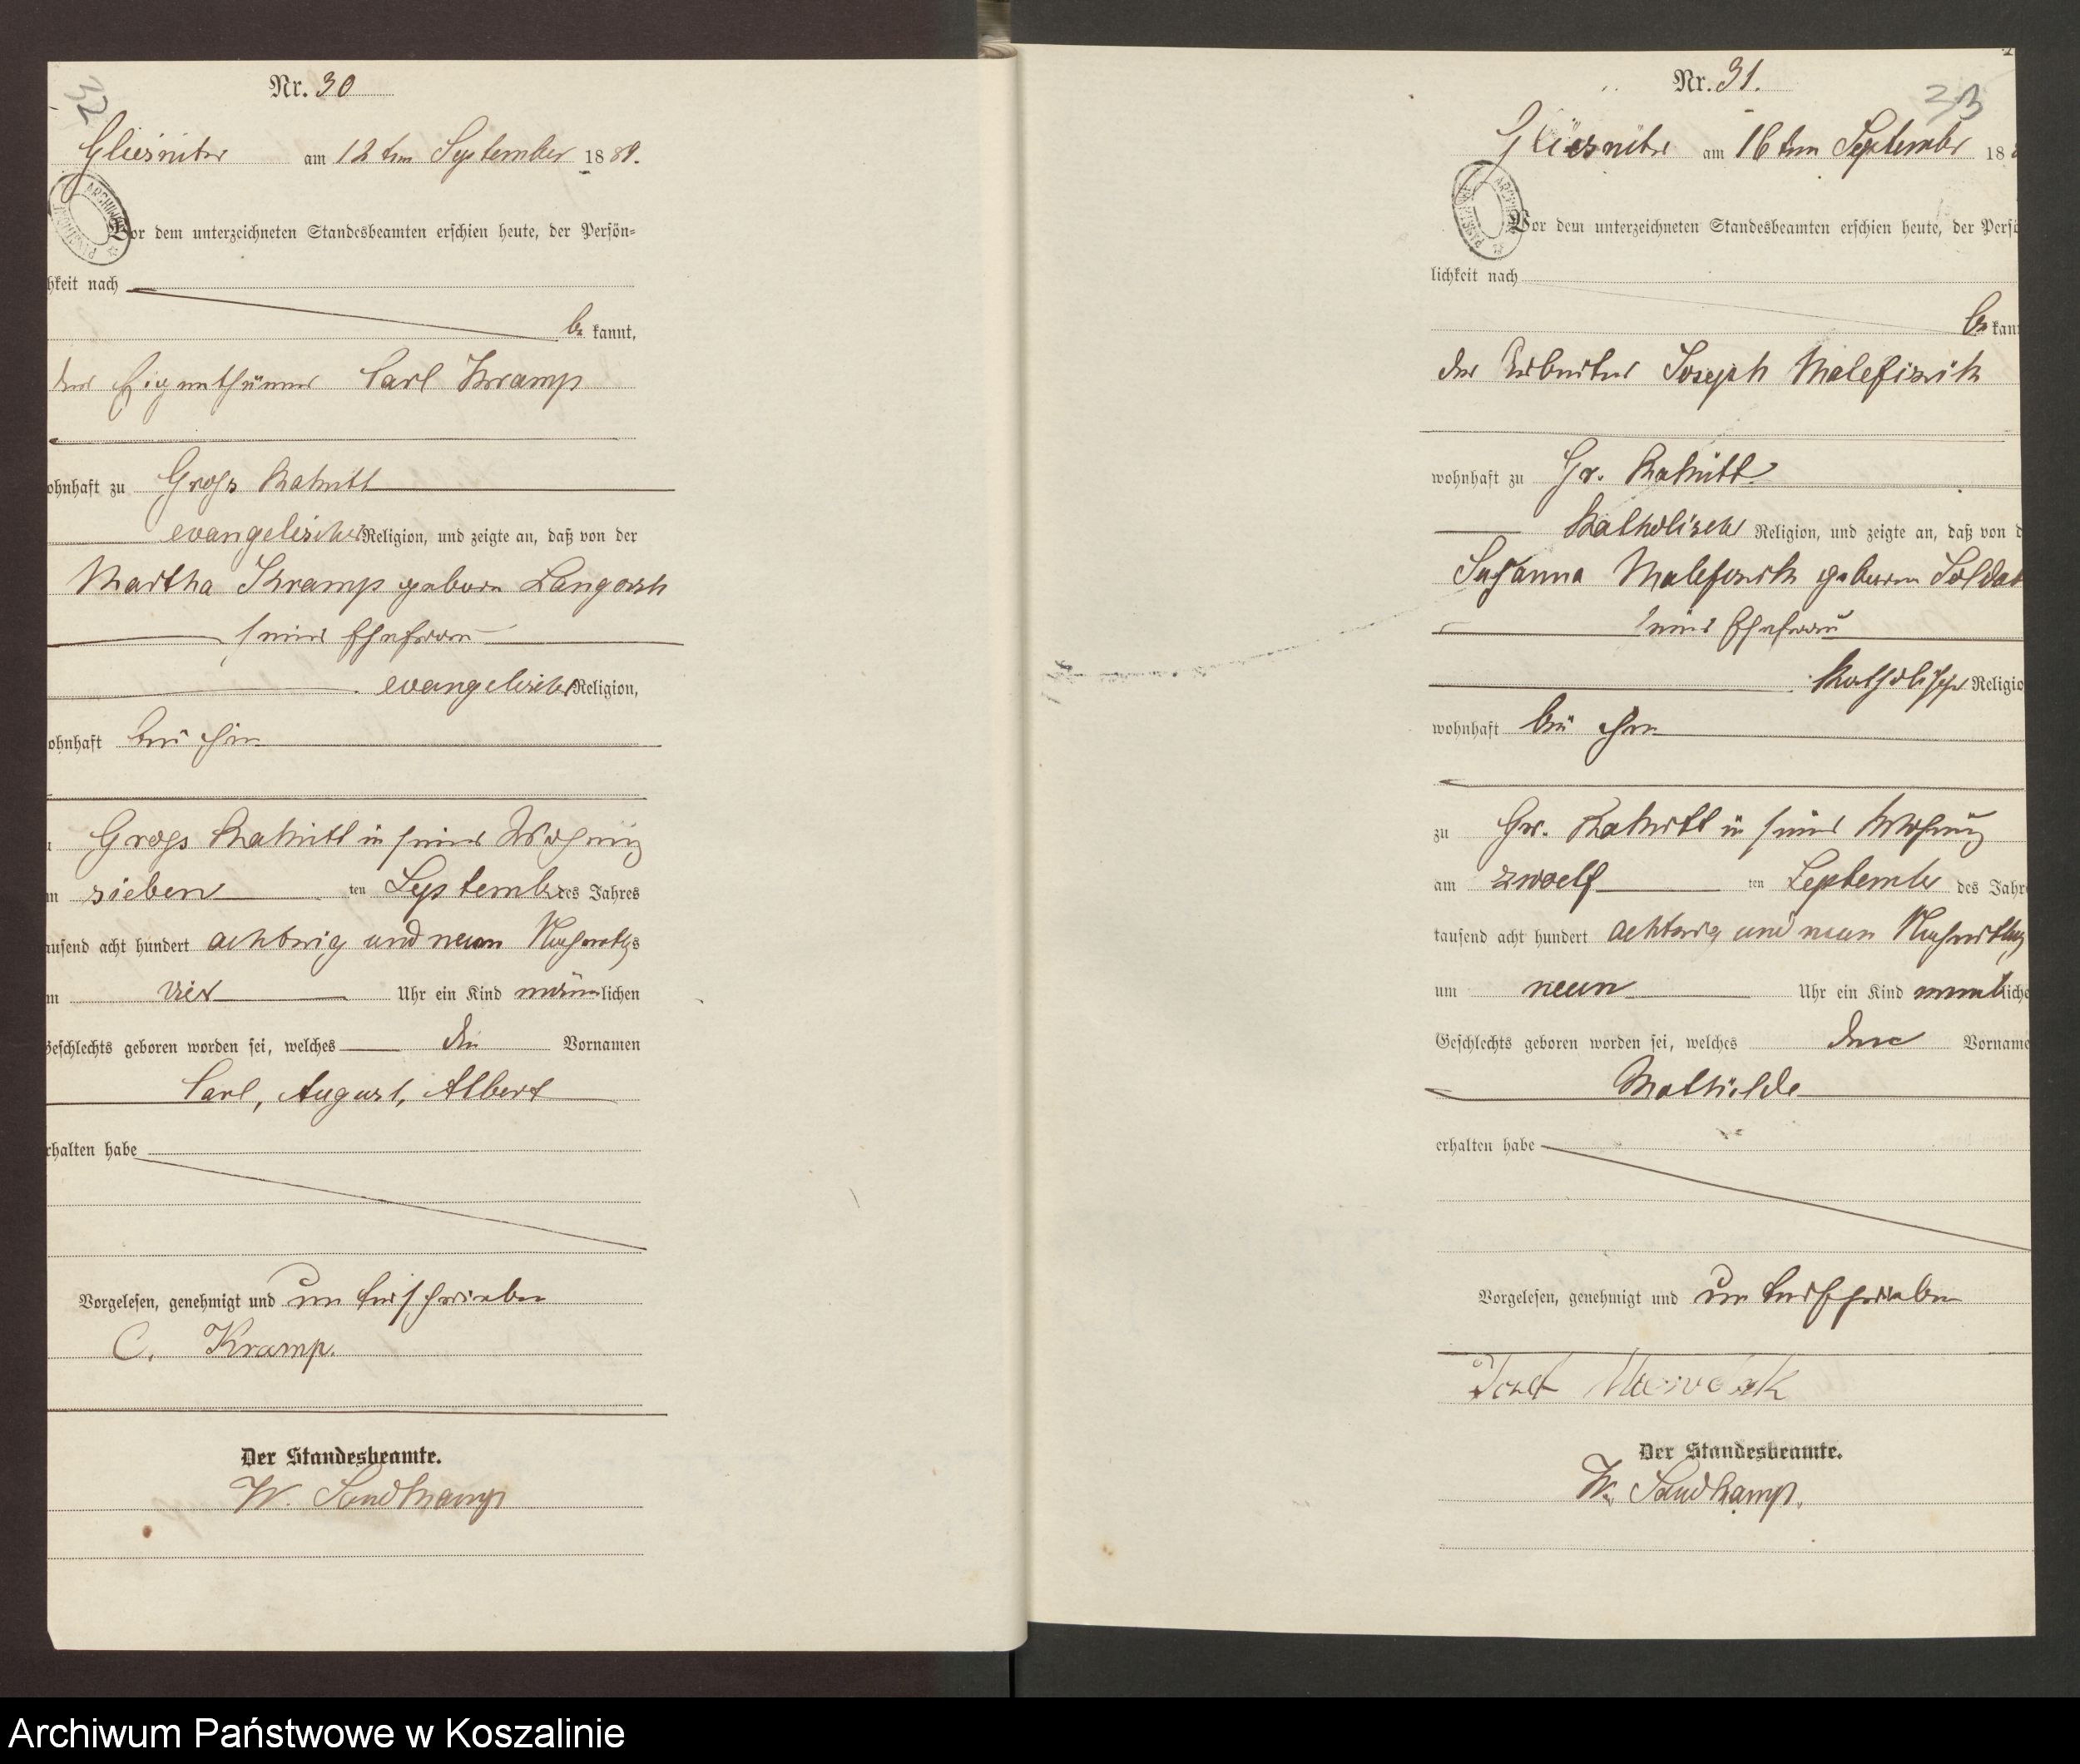 32
Nr. 30
am 12ten September 1889.
Vor dem unterzeichneten Standesbeamten erschien heute, der Persön-
hkeit nach
be kannt,
der Eigenthümer Carl Kramp
ohnhaft zu Gross
evangelischer Religion, und zeigte an, daß von der
Martha Kramp geborn
seiner Ehefrau
evangelischer Religion,
ohnhaft bei ihm
Gross in seiner Wohnung
m sieben ten September des Jahres
ausend acht hundert achtzig und neun Nachmittags
m vier Uhr ein Kind männlichen
Geschlechts geboren worden sei, welches die Vornamen
Carl, August, Albert
rhalten habe
Vorgelesen, genehmigt und unterschrieben
C. Kramp.
Der Standesbeamte.
W. Sandkamp
33
Nr. 31.
am 16ten September 18
Vor dem unterzeichneten Standesbeamten erschien heute, der Persö
lichkeit nach
be kann
der Arbeiter Joseph
wohnhaft zu Gr.
katholischer Religion, und zeigte an, daß von d
Susanna geboren Soldat
seiner Ehefrau
katholischer Religio
wohnhaft bei ihm
zu Gr. in seiner Wohnung
am zwoelf ten September des Jahre
tausend acht hundert achtzig und neun Nachmittag
um neun Uhr ein Kind liche
Geschlechts geboren worden sei, welches den Vorname
Mathilde
erhalten habe
Vorgelesen, genehmigt und unterschrieben
Der Standesbeamte.
W. Sandkamp.
Archiwum Państwowe w Koszalinie